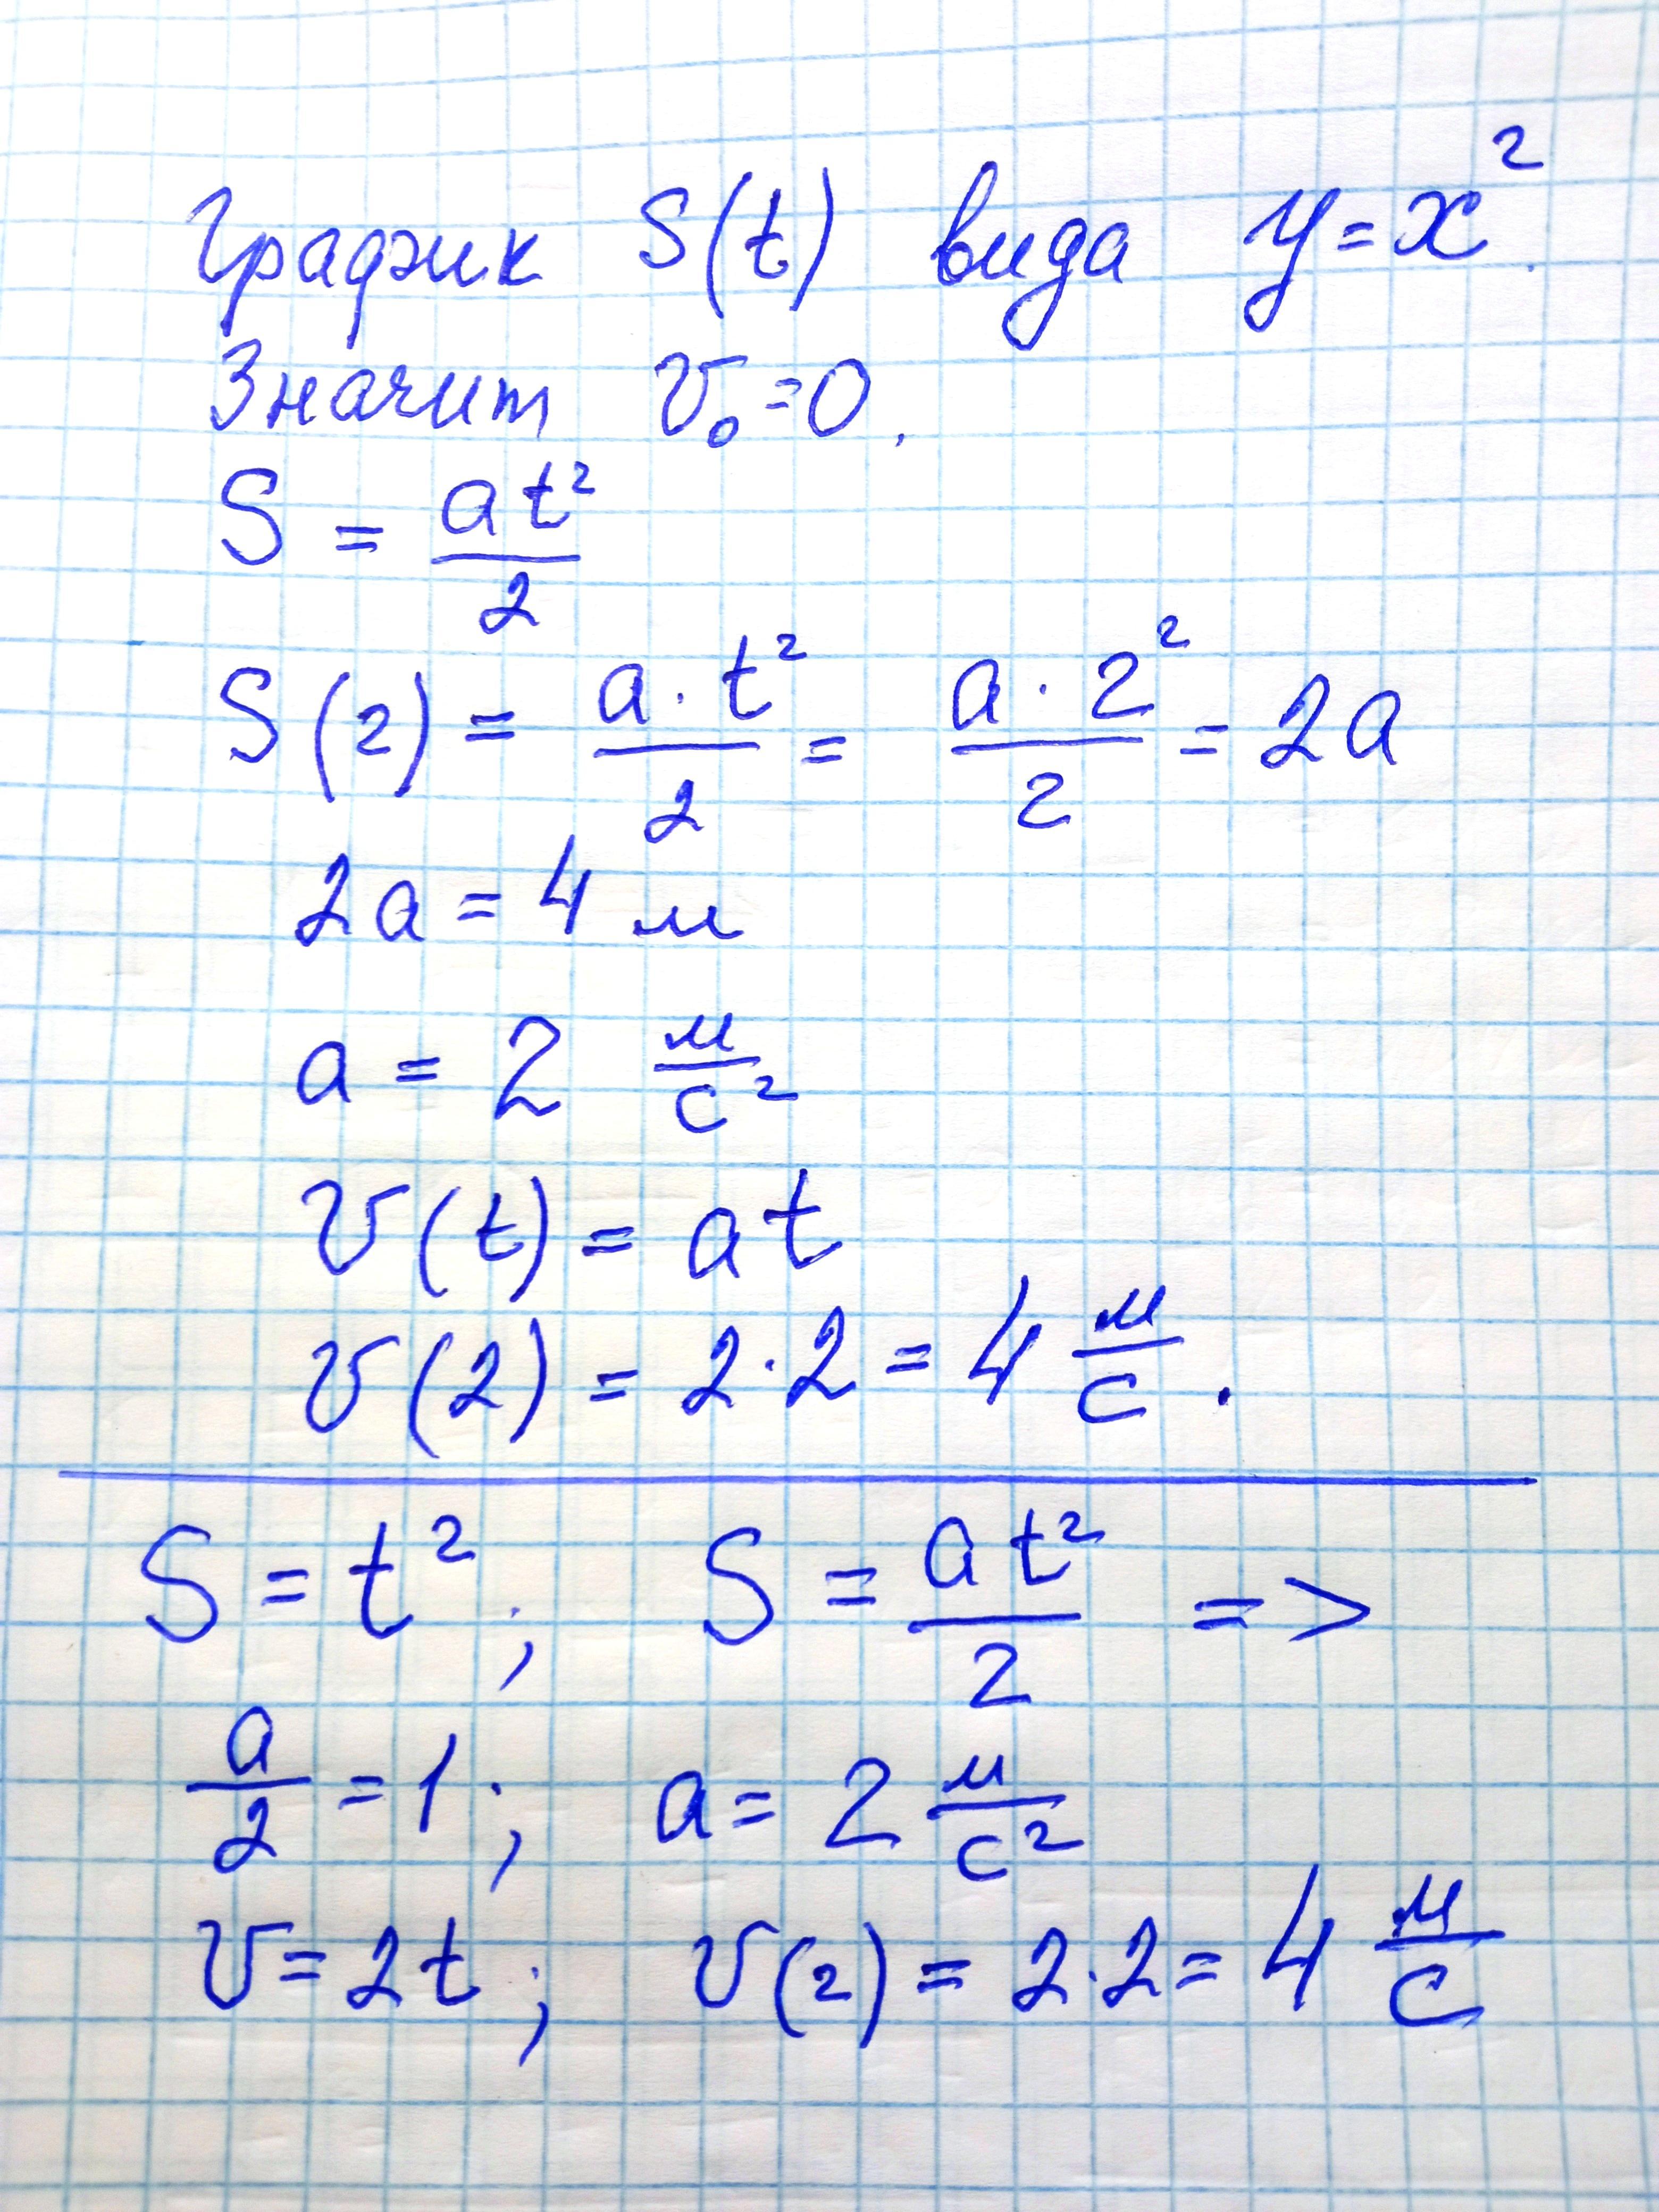 График S(t) вида y=x².
Значит v₀=0.
S = at²/2
S(2) = a·t²/2 = a·2²/2 = 2a
2a = 4 м
a = 2 м/с²
v(t) = at
v(2) = 2·2 = 4 м/с.
S = t²; S = at²/2 =>
a/2 = 1; a = 2 м/с²
v = 2t; v(2) = 2·2 = 4 м/с